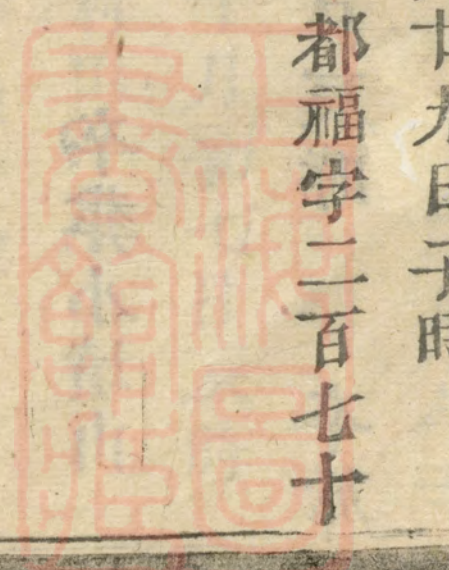 廿九日子時
都福字二百七十
上海圖
書館藏